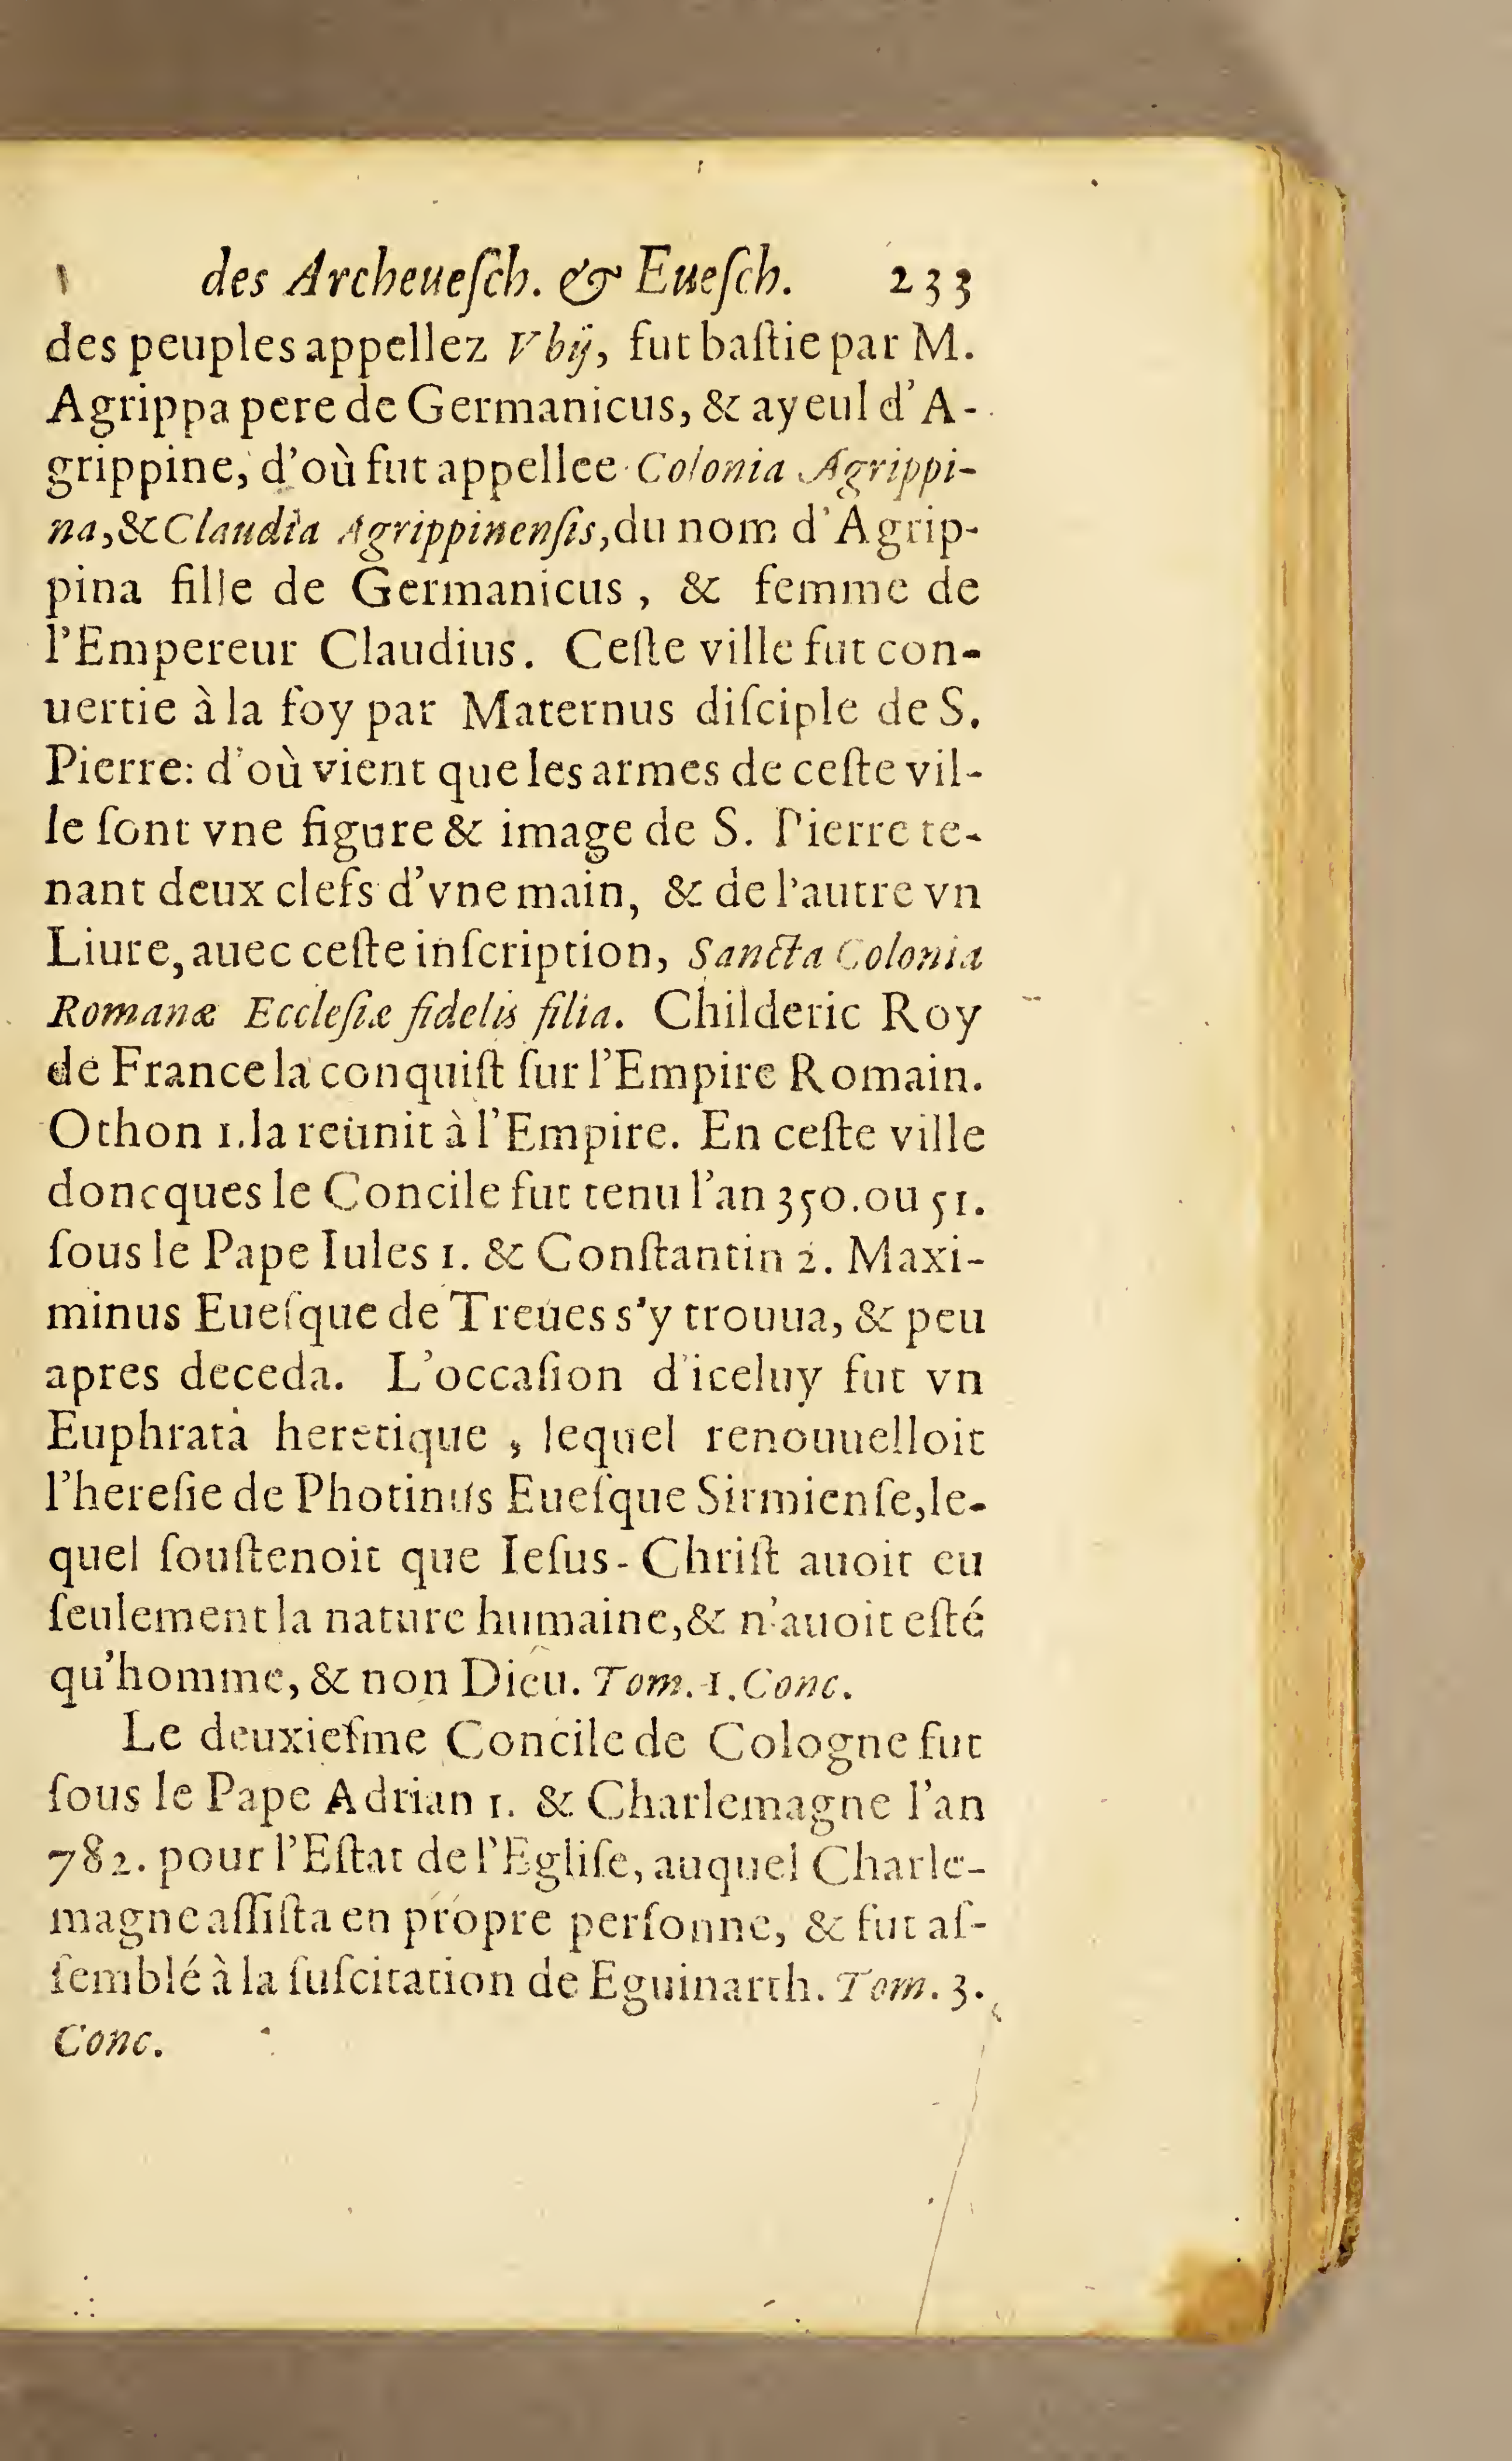 des Archeueſch. & Eueſch. 233
des peuples appellez Vbij, fut baſtie par M.
Agrippa pere de Germanicus, & ayeul d'A-
grippine, d'où fut appellee Colonia Agrippi-
na, & Claudia Agrippinenſis, du nom d'Agrip-
pina fille de Germanicus, & femme de
l'Empereur Claudius. Ceſte ville fut con-
uertie à la foy par Maternus diſciple de S.
Pierre: d'où vient que les armes de ceſte vil-
le ſont vne figure & image de S. Pierre te-
nant deux clefs d'vne main, & de l'autre vn
Liure, auec ceſte inſcription, Sancta Colonia
Romanæ Eccleſiæ fidelis filia. Childeric Roy
de France la conquiſt ſur l'Empire Romain.
Othon 1. la reünit à l'Empire. En ceſte ville
doncques le Concile fut tenu l'an 350. ou 51.
ſous le Pape Iules 1. & Conſtantin 2. Maxi-
minus Eueſque de Treues s'y trouua, & peu
apres deceda. L'occaſion d'iceluy fut vn
Euphrata heretique, lequel renouuelloit
l'hereſie de Photinus Eueſque Sirmienſe, le-
quel ſouſtenoit que Ieſus-Chriſt auoit eu
ſeulement la nature humaine, & n'auoit eſté
qu'homme, & non Dieu. Tom. 1. Conc.
Le deuxieſme Concile de Cologne fut
ſous le Pape Adrian 1. & Charlemagne l'an
782. pour l'Eſtat de l'Egliſe, auquel Charle-
magne aſſiſta en propre perſonne, & fut aſ-
ſemblé à la ſuſcitation de Eguinarth. Tom. 3.
Conc.